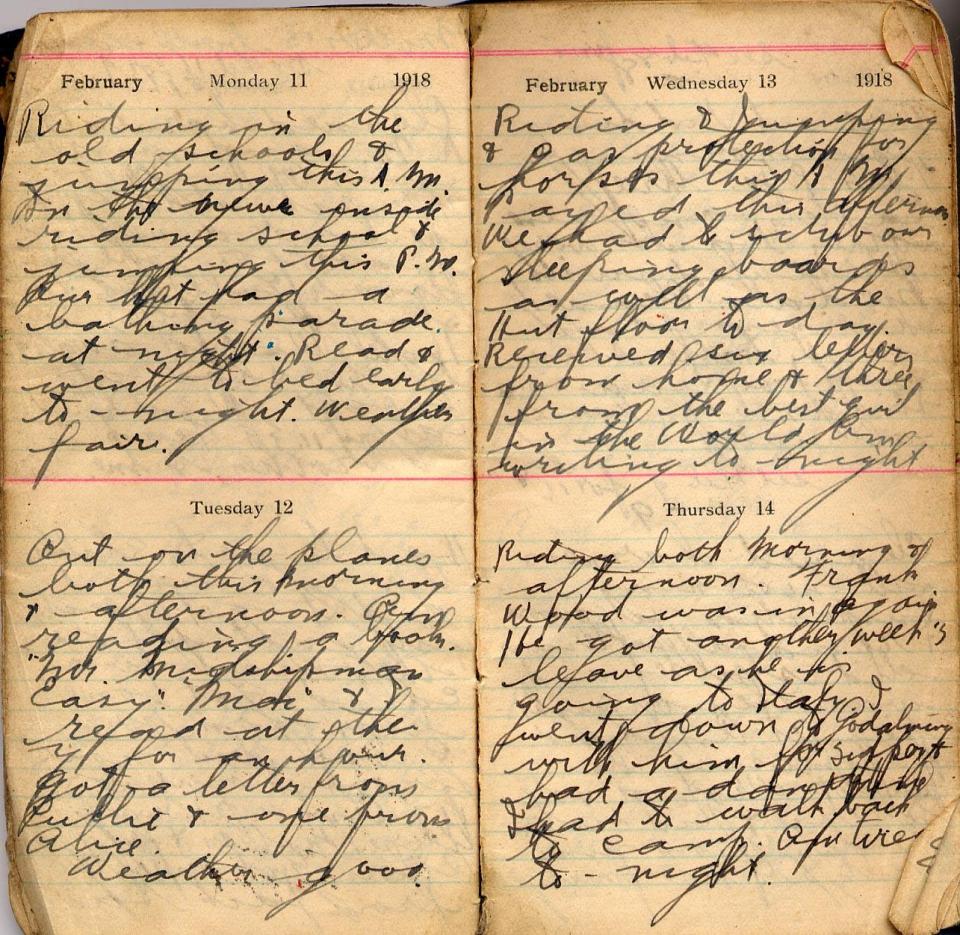 February Monday 11 1918
Riding in the
old schools &
jumping this A.M.
In the new inside
riding school &
jumping this P.M.
Our hut had a
bathing parade.
at night. Read &
went to bed early
to-night. Weather
fair.
Tuesday 12
Out on the planes
both this morning
& afternoon. Am
reading a book.
"Mr. Midshipman
Easy". "Mac" & I
read at the
Y for an hour.
Got a letter from
& one from
Alice.
Weather good.
February Wednesday 13 1918
Riding & Jumping
& gas protection for
horses this A M,
Payed this afternoon
We had to scrub our
sleeping boards
as well as the
Hut floor to day.
Received six letters
from home & three
from the best girl
in the World Am
writing to-night
Thursday 14
Riding both Morning &
afternoon. Frank
Wood was in again
He got another week's
leave as he is
going to Italy I
went down to Godalming
with him for supper &
had a dandy time
I had to walk back
to camp. Am tired
to-night.